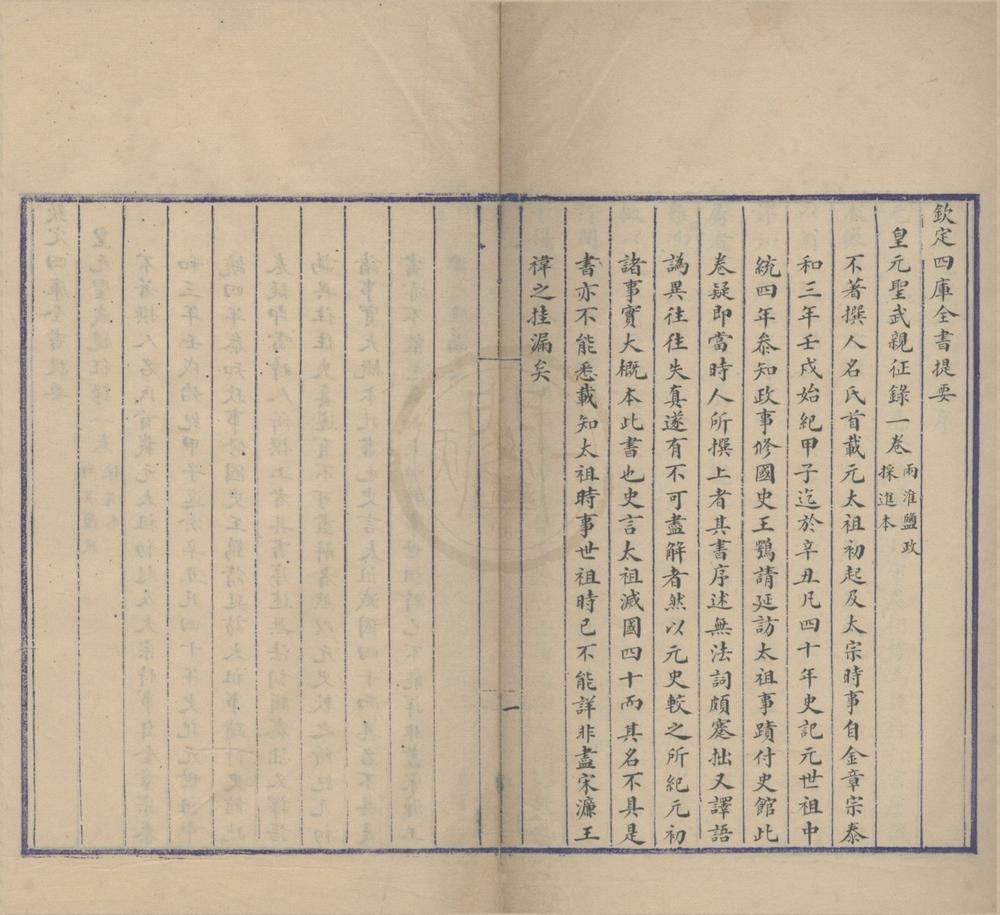 欽定四庫全書提要
皇元聖武親征錄一卷兩淮鹽政採進本
不著撰人名氏首載元太祖初起及太宗時事自金章宗泰
和三年壬戌始紀甲子迄於辛丑凡四十年史記元世祖中
統四年叅知政事修國史王鶚請延訪太祖事蹟付史館此
卷疑即當時人所撰上者其書序述無法詞頗蹇拙又譯語
譌異往往失真遂有不可盡解者然以元史較之所紀元初
諸事實大概本此書也史言太祖滅國四十而其名不具是
書亦不能悉載知太祖時事世祖時已不能詳非盡宋濂王
禕之挂漏矣
一